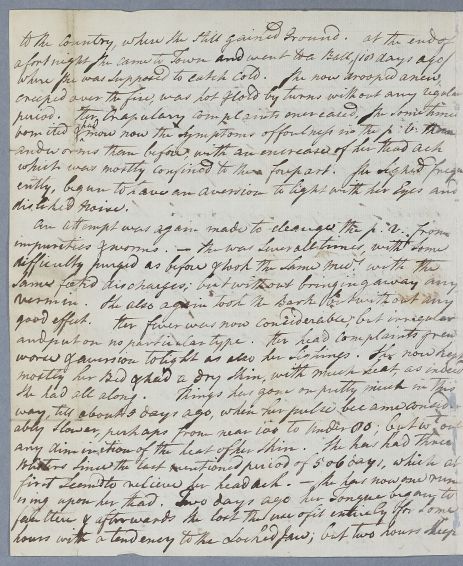 to the Country, where she still gained Ground. at the end of
a fortnight she came to Town and went to a Ball, (10 days ago)
where she was supposed to catch Cold. She now drooped anew,
creeped over the fire, was hot & cold by turns without any regular
period. Her Crapulary complaints encreased. She sometimes
vomited & had now the Symptoms of foulness in the p. v.
and worms than before, with an encrease of her head ach
which was mostly confined to the forepart. She sighed frequ
ently, began to have an aversion to light with her Eyes and
disliked noise.
An attempt was again made to cleanse the p. v. from
impurities & worms. — She was several times, with some
difficulty purged as before & took the same med. with the
same foetid discharges; but without bringing away any
vermin. She also again took the Bark but without any
good effect. Her fever was now considerable, but irregular
and put on no particular type. Her head complaints grew
worse & aversion to light as also her . She now kept
mostly her Bed & had a dry Skin, with much heat as indeed
she had all along. Things has gone on pretty much in this
way, till about 5 days ago, when her pulse became consider
ably slower, perhaps from near 120 to under 80, but without
any diminution of the heat of her Skin. She has had three
since the last mentioned period of 5 or 6 days, which at
first seemed to relieve her headach. — She has now one run
ning upon her head. Two days ago her Tongue began to
faulter & afterwards she lost the use of it entirely for some
hours with a tendency to the Locked Jaw; but two hours sleep